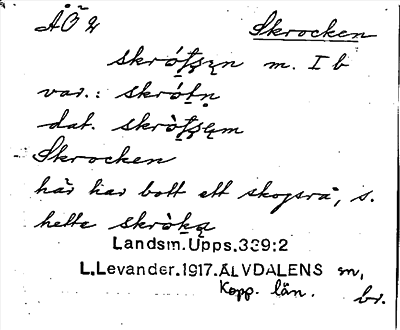 ÅÖ 2 Skrocken
skrótsen m. I b
var.: skrótn
dat. skròtsem
Skrocken
här har bott ett skogsrå, s.
hette skròka
Landsm.Upps.339:2
L.Levander.1917.ÄLVDALENS m,
Kopp. län. br.